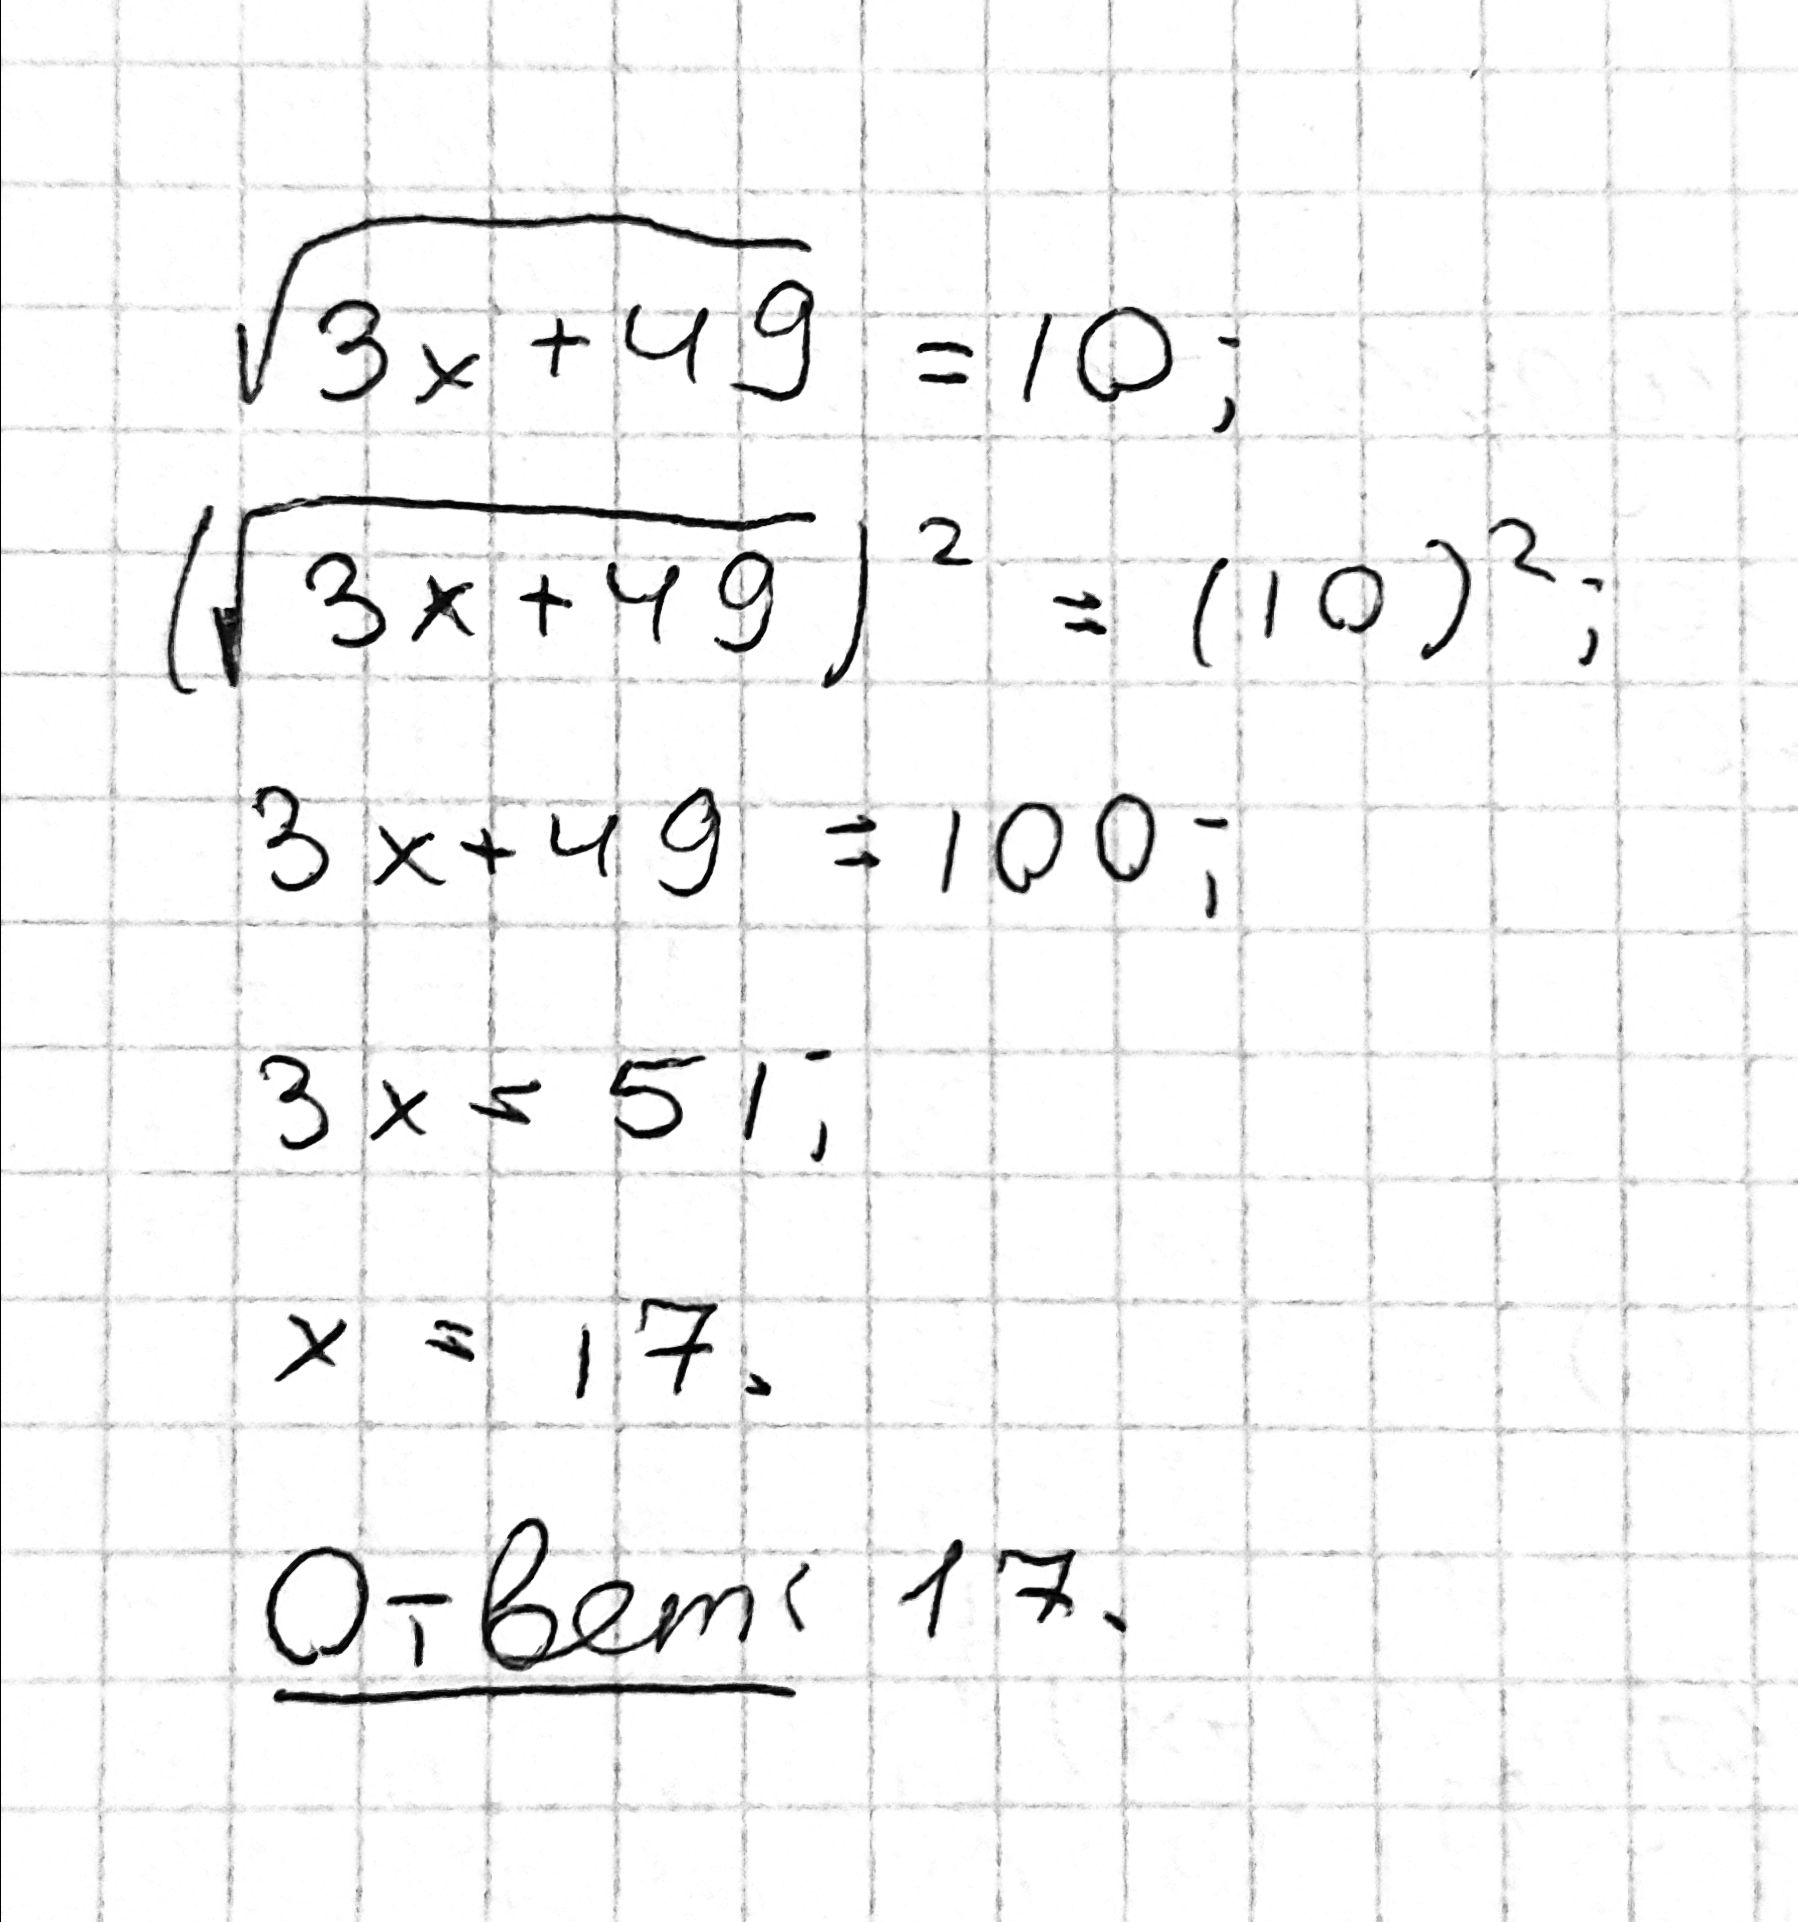 √(3x + 49) = 10;
(√(3x + 49))² = (10)²;
3x + 49 = 100;
3x = 51;
x = 17.
Ответ: 17.